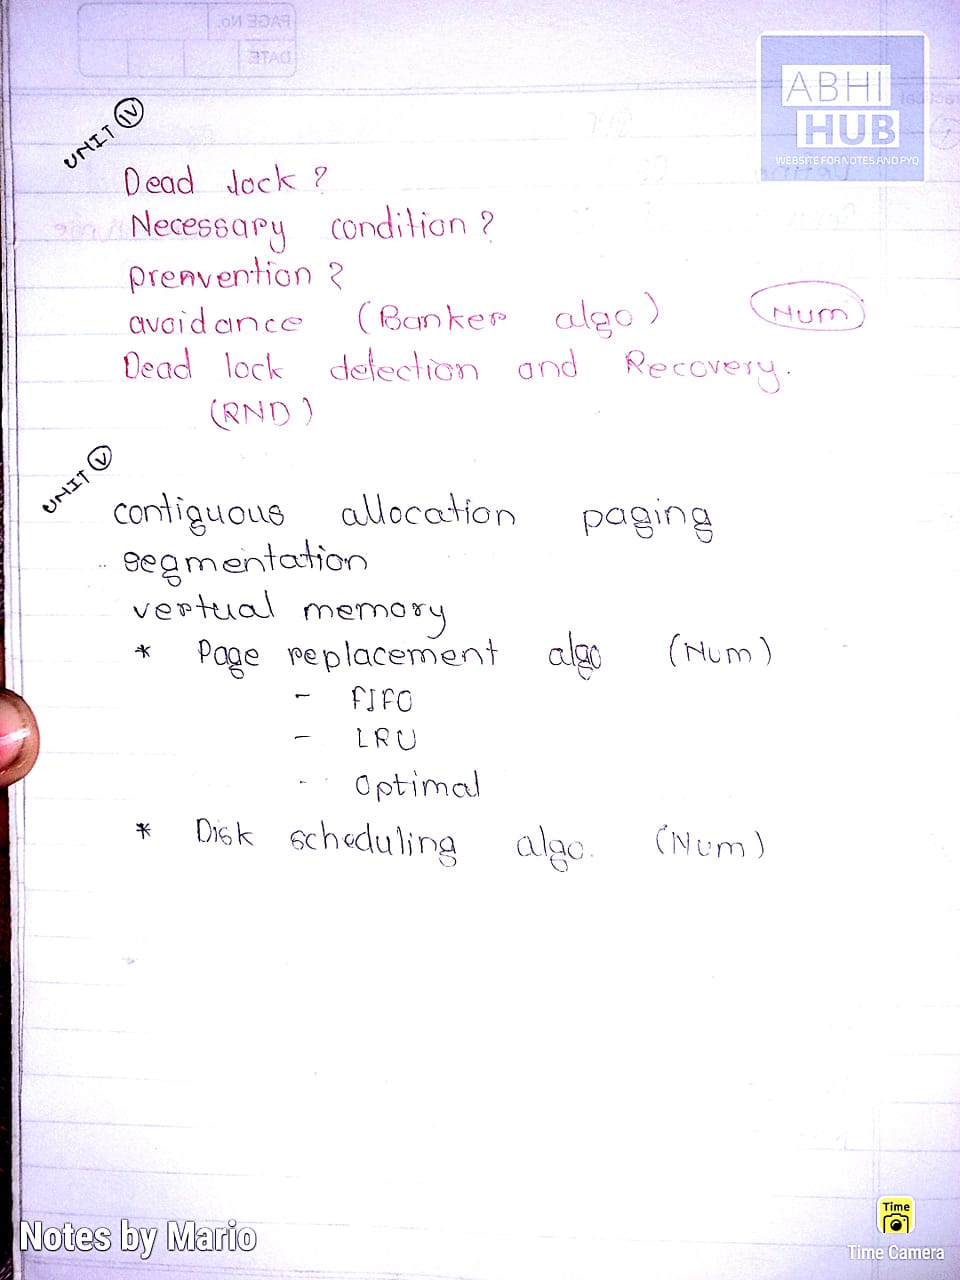 PAGE No.
DATE
ABHI
HUB
WEBSITE FOR NOTES AND PYQ
UNIT IV
Dead lock ?
Necessary condition ?
prenvention ?
avoidance (Banker algo) Num
Dead lock detection and Recovery.
(RND)
UNIT V
contiguous allocation paging
segmentation
vertual memory
* Page replacement algo (Num)
- FIFO
- LRU
- Optimal
* Disk scheduling algo. (Num)
Notes by Mario
Time
Time Camera